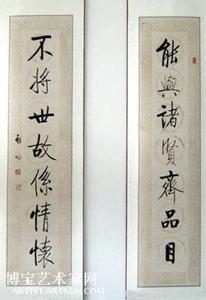 能與諸賢齊品目
不將世故係情懷
啟功
博宝艺术家网
ARTIST.ARTXUN.COM